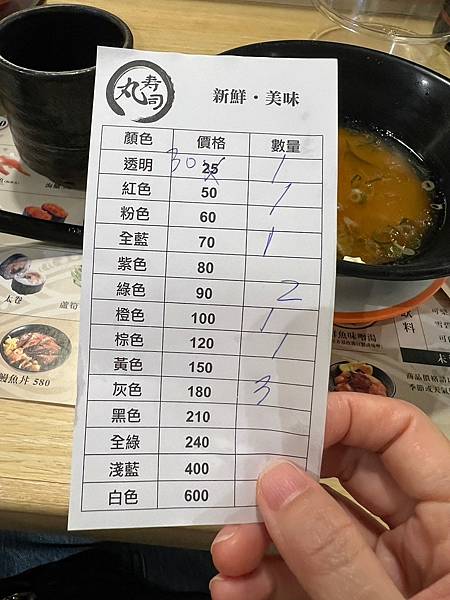 丸 寿司
新鮮・美味
顏色 價格 數量
透明 30 25 1
紅色 50 1
粉色 60
全藍 70 1
紫色 80
綠色 90 2
橙色 100 1
棕色 120 1
黃色 150
灰色 180 3
黑色 210
全綠 240
淺藍 400
白色 600
太卷
蘆筍
鰻魚丼 580
魚味噌湯
飲料